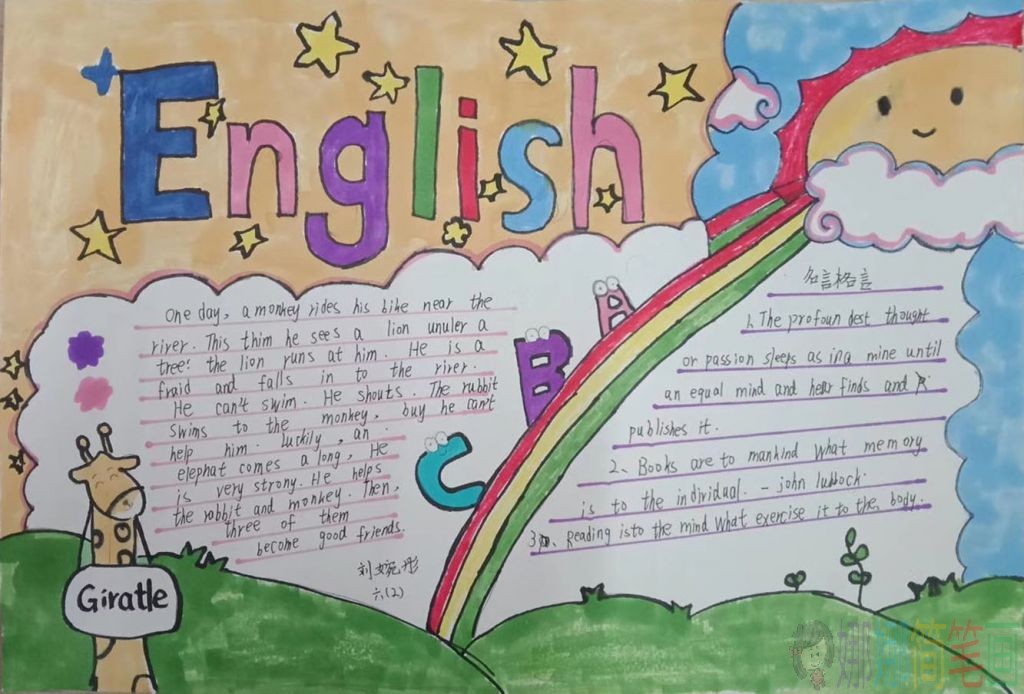 English
One day, a monkey rides his bike near the
river. This thim he sees a lion unuler a
tree: the lion runs at him. He is a
fraid and falls in to the river.
He can't swim. He shouts. The rubbit
swims to the monkey, buy he can't
help him. luckily, an
elephat comes a long, He
is very strong. He helps
the robbit and monkey. Then,
three of them
become good friends.
刘婉彤
六(2)
A
B
C
Giratle
名言格言
1、The profoun dest thought
or passion sleeps as in a mine until
an equal mind and heur finds and
publishes it.
2、Books are to mankind what memory
is to the individual. - john lubbock.
3、Reading isto the mind what exercise it to the body.
简笔画